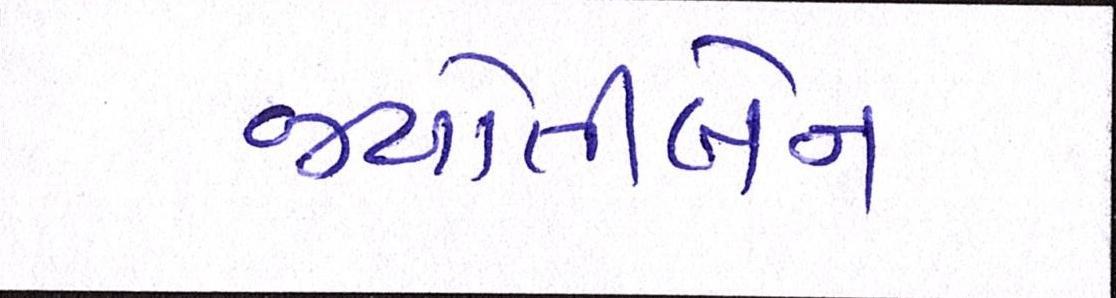 જ્યોતીબેન